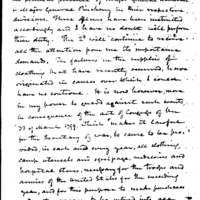 & Major General Pinckney in their respective
divisions. These officers have been instructed
accordingly and I have no doubt will perform
their duty. The will continue to receive
all the attention from me its importance
demands. In failures in the supplies of
clothing that have recently occurred, have
originated in causes over which I could
have no controul. It is now however, more
in my power to guard against such events,
in consequence of the act of Congress of the
3d of March 1799. Which "makes it lawful
for the Secretary of war, to cause to be pro-
vided, in each and every year, all clothing,
camp utensils and equipage, medicines and
hospital stores, necessary for the troops and
armies of the United States for the succeeding
year, and for this purpose to make purchases